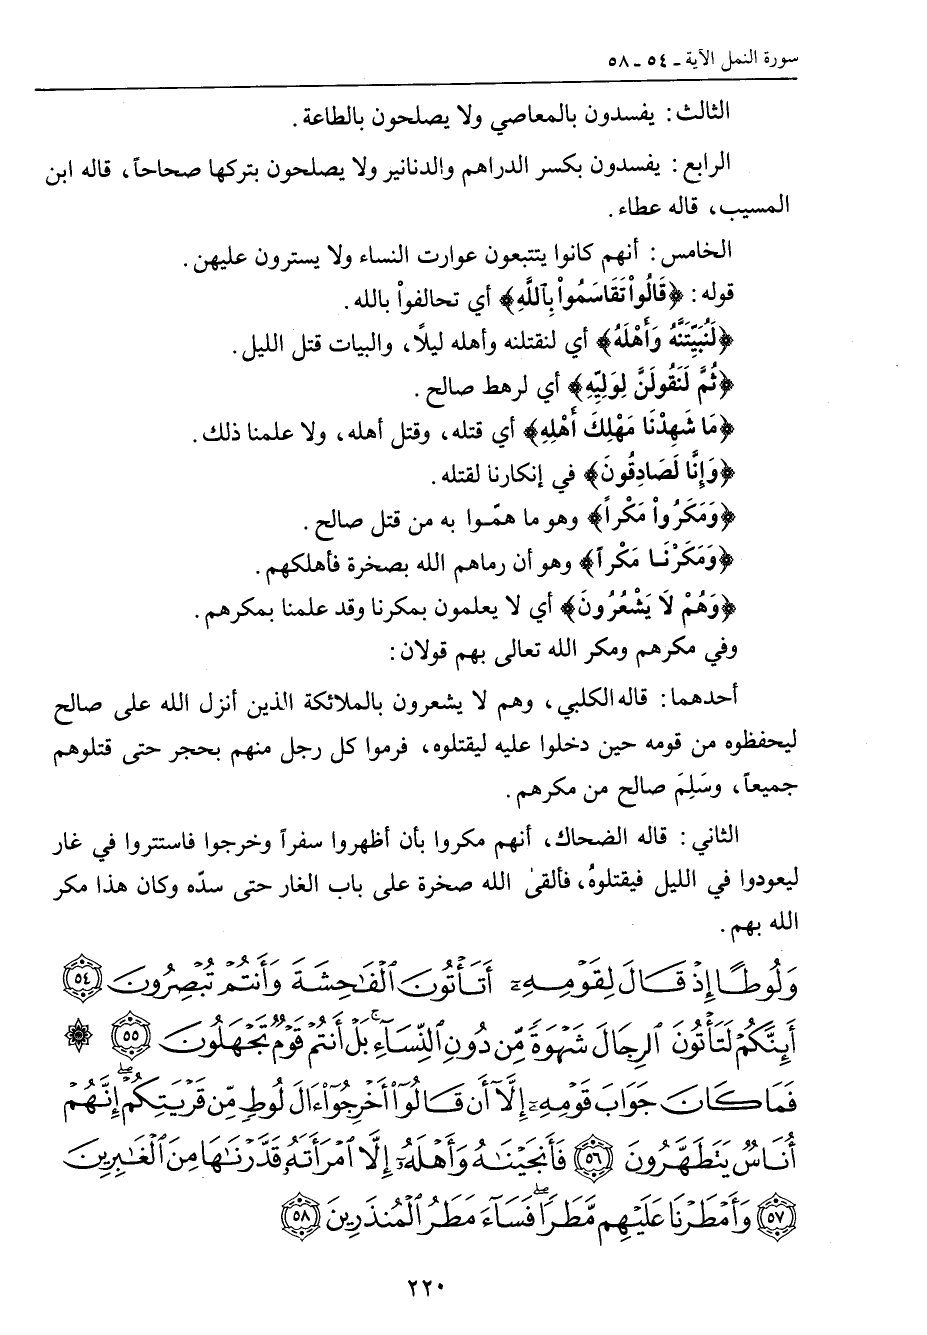 سورة النمل الآية ـ ٥٤ ـ ٥٨
الثالث: يفسدون بالمعاصي ولا يصلحون بالطاعة.
الرابع: يفسدون بكسر الدراهم والدنانير ولا يصلحون بتركها صحاحاً، قاله ابن
المسيب، قاله عطاء.
الخامس: أنهم كانوا يتتبعون عوارت النساء ولا يسترون عليهن.
قوله: ﴿قَالُواْ تَقَاسَمُواْ بِٱللَّهِ﴾ أي تحالفواْ بالله.
﴿لَنُبَيِّتَنَّهُ وَأَهْلَهُ﴾ أي لنقتلنه وأهله ليلًا، والبيات قتل الليل.
﴿ثُمَّ لَنَقُولَنَّ لِوَلِيِّهِ﴾ أي لرهط صالح.
﴿مَا شَهِدْنَا مَهْلِكَ أَهْلِهِ﴾ أي قتله، وقتل أهله، ولا علمنا ذلك.
﴿وَإِنَّا لَصَادِقُونَ﴾ في إنكارنا لقتله.
﴿وَمَكَرُواْ مَكْراً﴾ وهو ما همّوا به من قتل صالح.
﴿وَمَكَرْنَا مَكْراً﴾ وهو أن رماهم الله بصخرة فأهلكهم.
﴿وَهُمْ لَا يَشْعُرُونَ﴾ أي لا يعلمون بمكرنا وقد علمنا بمكرهم.
وفي مكرهم ومكر الله تعالى بهم قولان:
أحدهما: قاله الكلبي، وهم لا يشعرون بالملائكة الذين أنزل الله على صالح
ليحفظوه من قومه حين دخلوا عليه ليقتلوه، فرموا كل رجل منهم بحجر حتى قتلوهم
جميعاً، وسَلِمَ صالح من مكرهم.
الثاني: قاله الضحاك، أنهم مكروا بأن أظهروا سفراً وخرجوا فاستتروا في غار
ليعودوا في الليل فيقتلوهُ، فألقىٰ الله صخرة على باب الغار حتى سدّه وكان هذا مكر
الله بهم.
وَلُوطًا إِذْ قَالَ لِقَوْمِهِۦٓ أَتَأْتُونَ ٱلْفَٰحِشَةَ وَأَنتُمْ تُبْصِرُونَ ٥٤
أَئِنَّكُمْ لَتَأْتُونَ ٱلرِّجَالَ شَهْوَةً مِّن دُونِ ٱلنِّسَآءِ ۚ بَلْ أَنتُمْ قَوْمٌ تَجْهَلُونَ ٥٥ ۞
فَمَا كَانَ جَوَابَ قَوْمِهِۦٓ إِلَّآ أَن قَالُوٓا۟ أَخْرِجُوٓا۟ ءَالَ لُوطٍ مِّن قَرْيَتِكُمْ ۖ إِنَّهُمْ
أُنَاسٌ يَتَطَهَّرُونَ ٥٦ فَأَنجَيْنَٰهُ وَأَهْلَهُۥٓ إِلَّا ٱمْرَأَتَهُۥ قَدَّرْنَٰهَا مِنَ ٱلْغَٰبِرِينَ
٥٧ وَأَمْطَرْنَا عَلَيْهِم مَّطَرًا ۖ فَسَآءَ مَطَرُ ٱلْمُنذَرِينَ ٥٨
٢٢٠